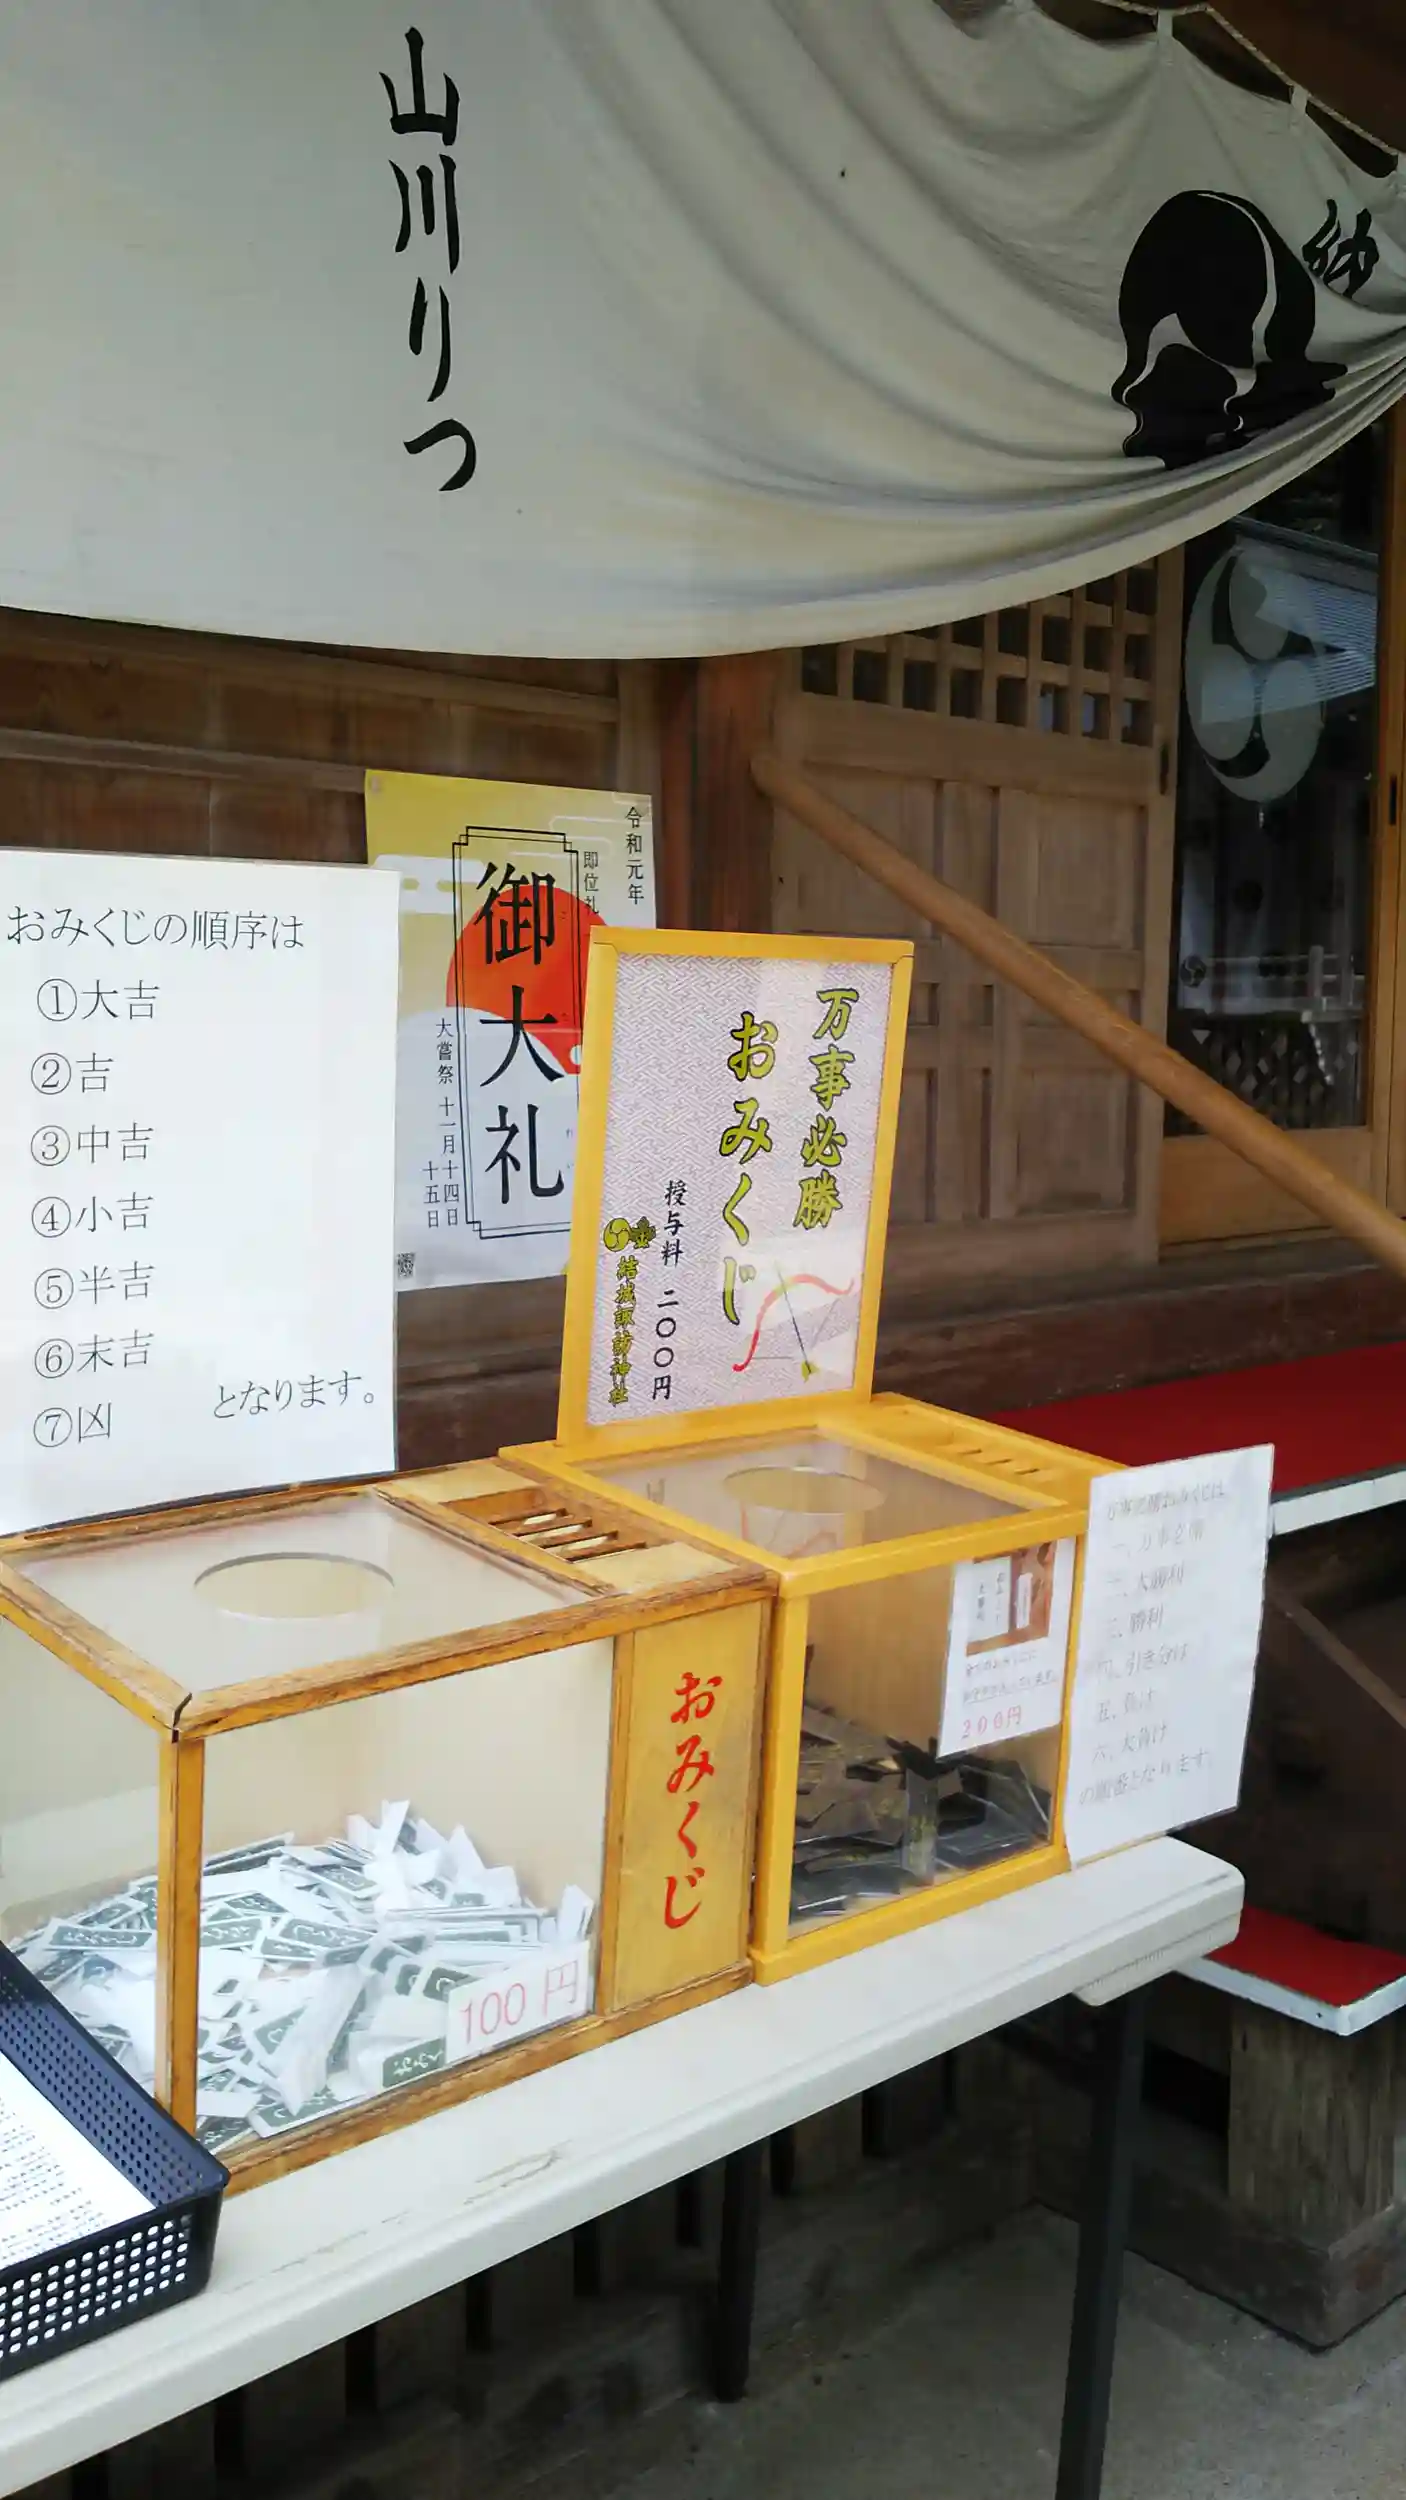 納
山川りつ
令和元年
即位礼
御大礼
大嘗祭 十一月十四日
十五日
おみくじの順序は
①大吉
②吉
③中吉
④小吉
⑤半吉
⑥末吉
⑦凶
となります。
万事必勝
おみくじ
授与料 二〇〇円
結城諏訪神社
おみくじ
100円
200円
万事必勝おみくじは、
一、万事必勝
二、大勝利
三、勝利
四、引き分け
五、負け
六、大負け
の順番となります。